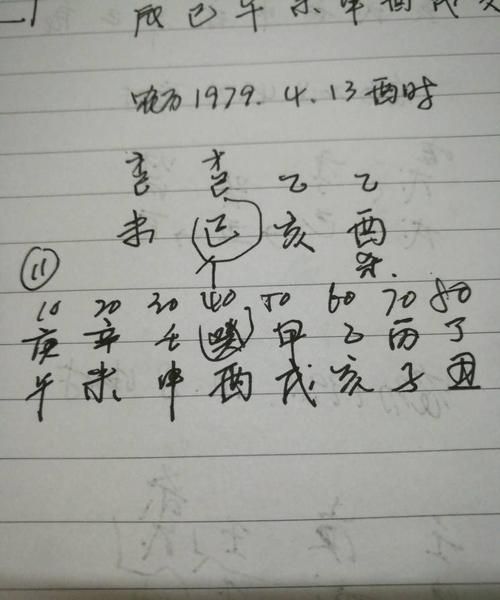 戌巳午未申酉戌亥
农历1979.4.13酉时
己 己 乙 乙
未 巳 亥 酉
11
10 20 30 40 50 60 70 80
庚 辛 壬 癸 甲 乙 丙 丁
午 未 申 酉 戌 亥 子 丑